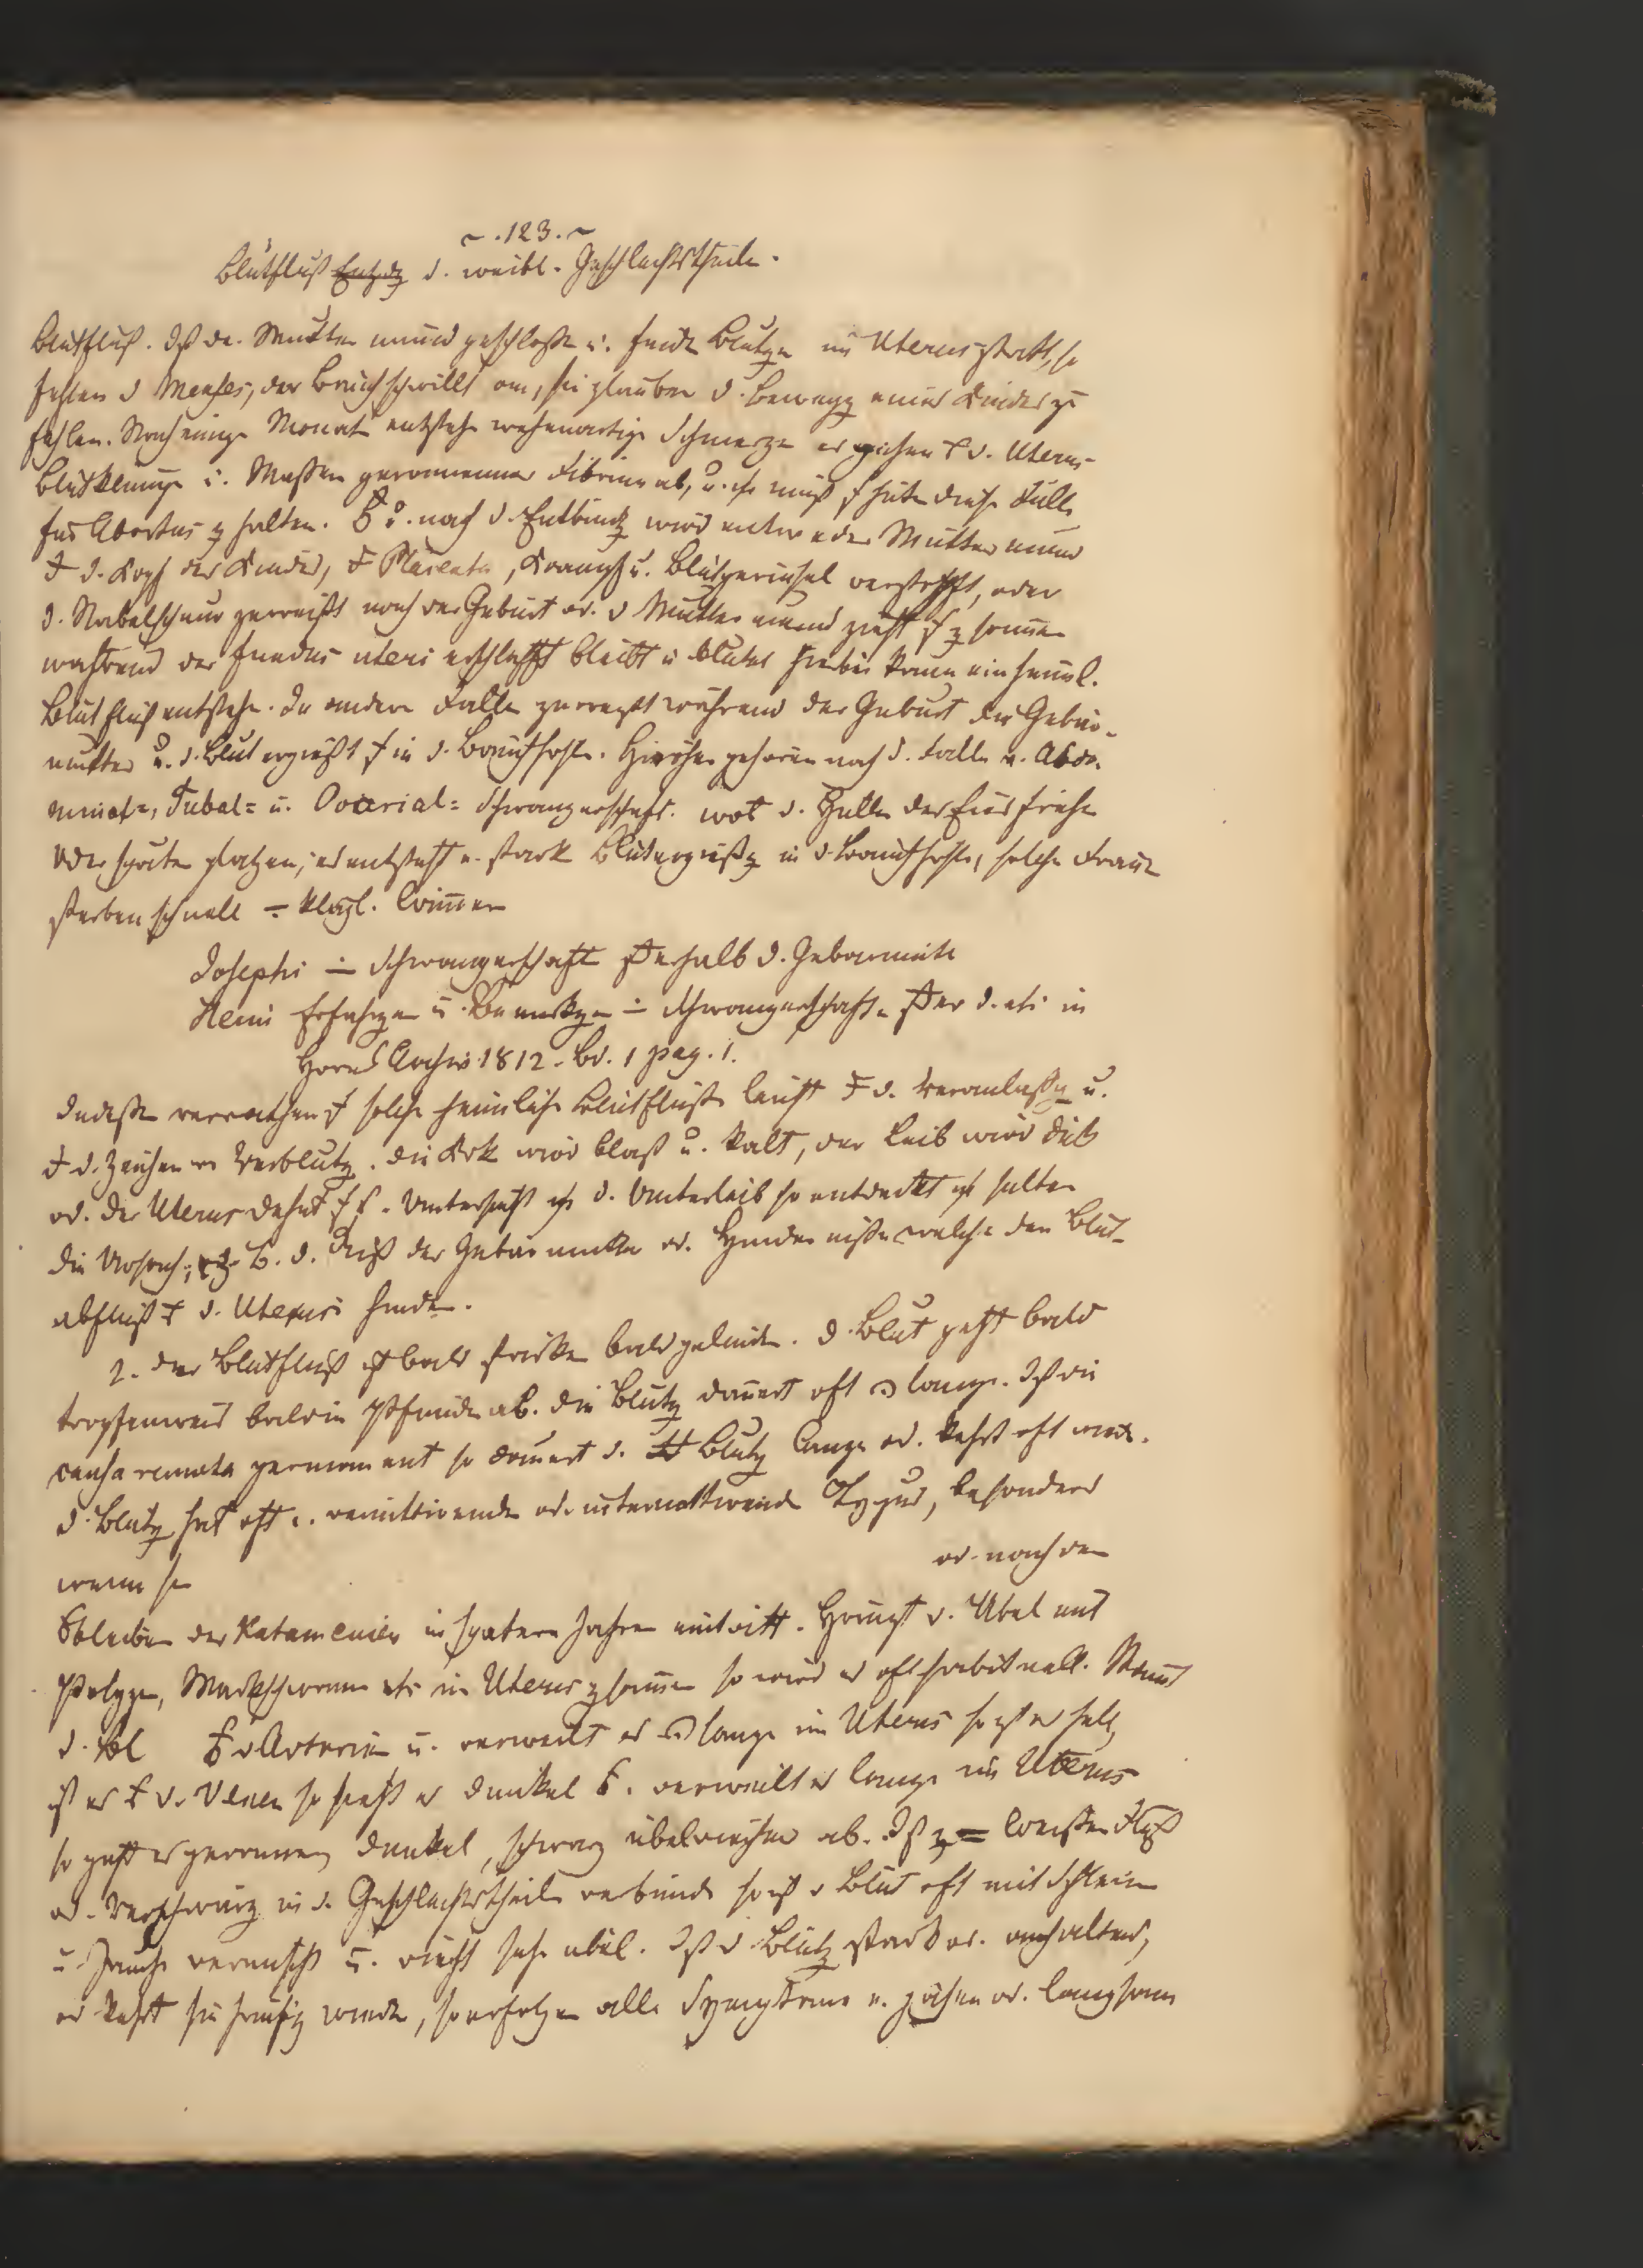 ~ . 123 . ~
Blutfluß d. weibl. Geschlechtstheile.
Blutfluß. Ist der Muttermund geschloße u. findet Blutg im Uterus statt, so
fehlen d Menses, der Bauch schwillt an, sie glauben d. Bewegg eines Kindes zu
fühlen. Nach einige Monat entstehe wehenartige Schmerze es gehen d. Uterus
Blutklumpe u. Massen geronnener Fibrine ab, u. muß hüte diese Fälle
für Abortus z halten. nach d. Entbindg wird entweder Muttermund
d. Kopf des Kindes, Placenta, Krampf u. Blutgerinsel verstopft, oder
d. Nabelschnur zerreißt nach der Geburt od. d Muttermund zieht zusamen
während der fundus uteri erschlafft bleibt u blutet hierbei kann ein heiml.
Blutfluß entstehe. In andern Fälle zerreißt während der Geburt die Gebär-
mutter u. d. Blut ergießt in d. Bauchhöhle. Hierher gehören noch d. Fälle v. Abdo-
minal=, Tubal= u. Ovarial= Schwangerschaft. wo d. Hülle des Eies frühe
oder späte platzen, es entsteht e. stark Blutergießg in d Bauchhöhle, solche Fraue
sterben schnell klägl. Wimmern
Josephi Schwangerschaft serhalb d. Gebärmutte
Heim Erfahrge u. Bemerkge Schwangerschafte ser d. etc in
Horns Archiv 1812. Bd. 1 pag. 1.
Indeße verrathen solche heimliche Blutflüße leicht d. Veranlaßg u.
d. Zeichen der Verblutg. die Krk wird blaß u. kalt, der Leib wird dick
od. der Uterus dehnt Untersucht d. Unterleib so entdeckt selten
die Ursach, z. B. d. Riß der Gebärmutter od. Hinderniße welche den Blut-
abfluß d. Uterus hinder.
2. der Blutfluß ist bald stärker bald gelinde. d. Blut geht bald
tropfenweis bald in Pfunde ab. die Blutg dauert oft lange. Ist die
causa remota permanent so dauert d. Blutg lange od. kehrt oft wied.
d. Blutg hat oft e. remittirende od. intermittirende Typus, besonders
wenn sie od. nach dem
bleiben der Katamenien in spätern Jahre eintritt. Hängt d. Übel mit
Polype, Markschwamm etc im Uterus zusamen so wird es oft habituell. Kömt
d. Bl d Arterie u. verweilt es lange im Uterus so ist es hell,
ist es d. Venen so fließt es dunkel verweilt es lange im Uterus
so geht es geronnen dunkel, schwarz übelriechend ab. Ist weißen Fluß
od. Verschwärg in d. Geschlechtstheile verbunde so ist d Blut oft mit Schleim
u Jauche vermischt u. riecht sehr übel. Ist d Blutg stark od. anhaltend,
od kehrt sie häufig wieder, so erfolge alle Symptome e. jähen od. langsam